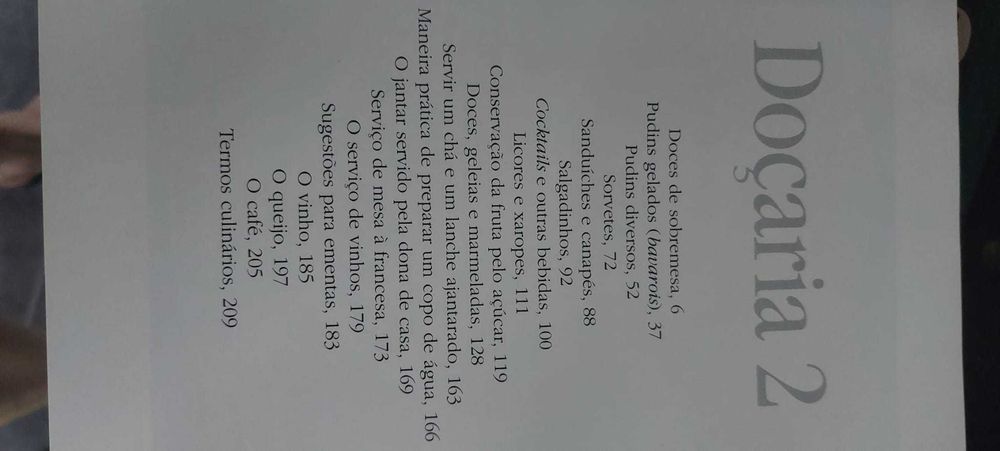 Doçaria 2
Doces de sobremesa, 6
Pudins gelados (bavarois), 37
Pudins diversos, 52
Sorvetes, 72
Sanduíches e canapés, 88
Salgadinhos, 92
Cocktails e outras bebidas, 100
Licores e xaropes, 111
Conservação da fruta pelo açúcar, 119
Doces, geleias e marmeladas, 128
Servir um chá e um lanche ajantarado, 163
Maneira prática de preparar um copo de água, 166
O jantar servido pela dona de casa, 169
Serviço de mesa à francesa, 173
O serviço de vinhos, 179
Sugestões para ementas, 183
O vinho, 185
O queijo, 197
O café, 205
Termos culinários, 209